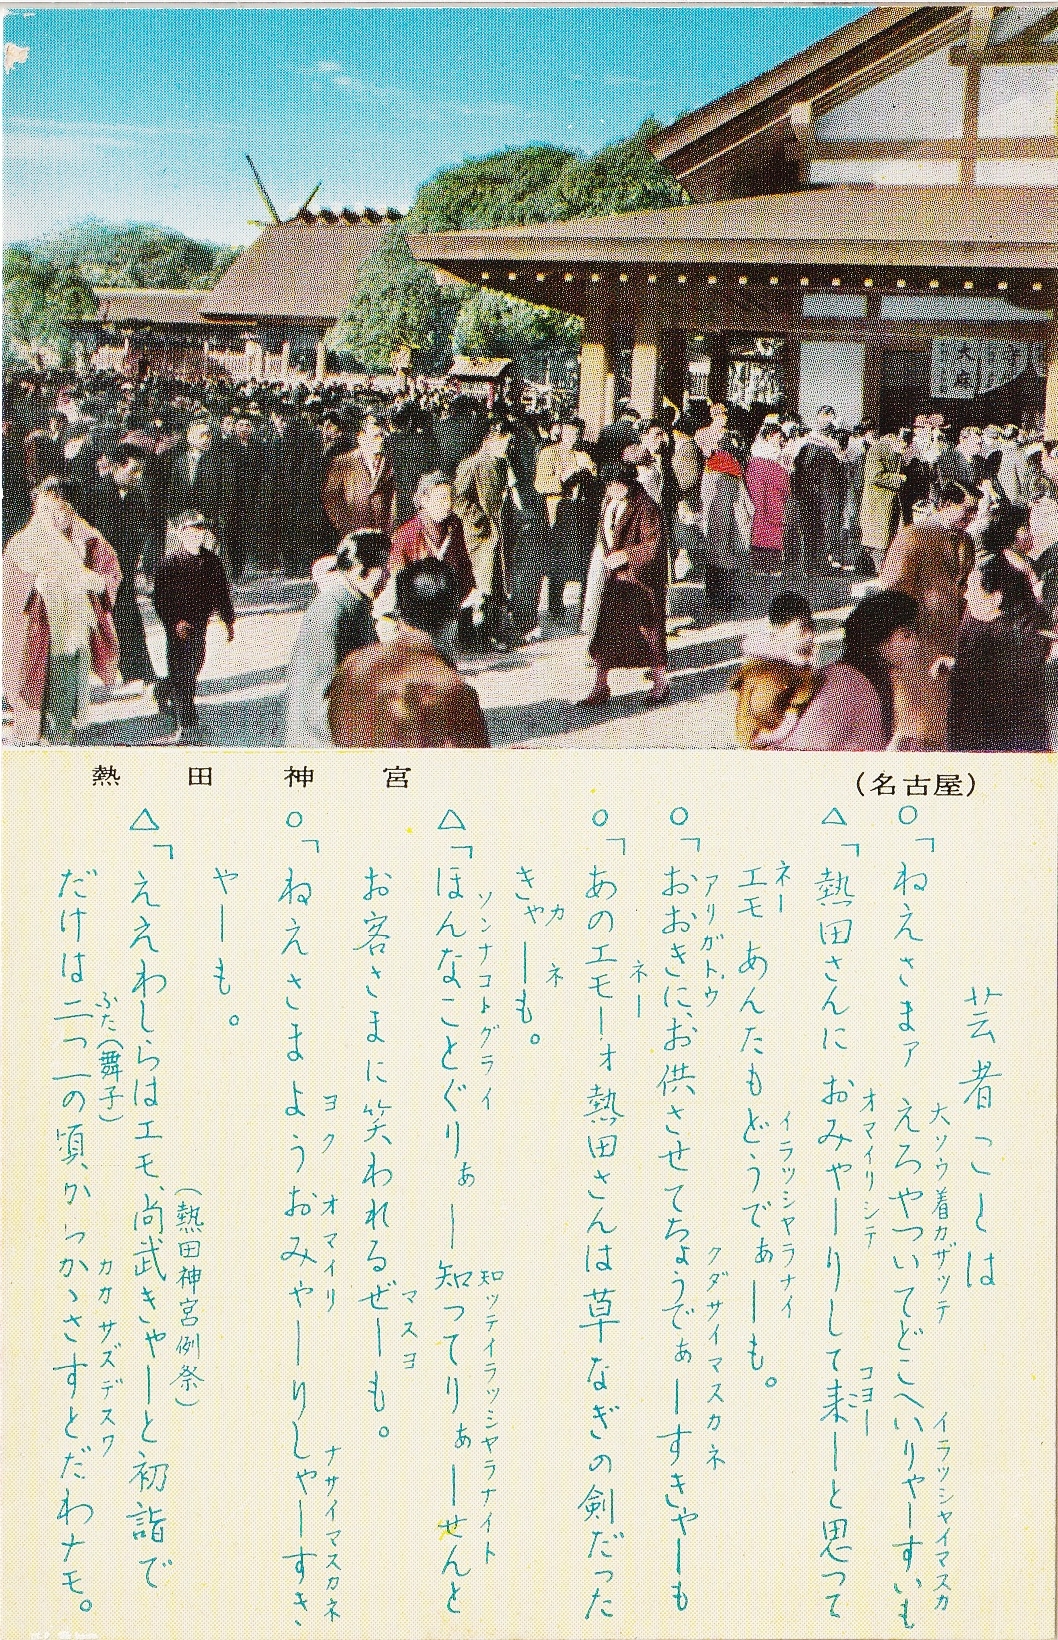 熱田神宮
(名古屋)
芸者ことは
○「ねえさまァ えろやついてどこへいりゃーすいも
大ソウ着カザッテ
イラッシャイマスカ
△「熱田さんに おみゃーりして来ーと思って
オマイリシテ
コヨー
エモ あんたもどうでぁーも。
ネー
イラッシャラナイ
○「おおきに、お供させてちょうでぁーすきゃーも
アリガトウ
クダサイマスカネ
○「あのエモーォ 熱田さんは草なぎの剣だった
ネー
きゃーも。
カネ
△「ほんなことぐりぁー 知ってりぁーせんと
ソンナコトグライ
知ッテイラッシャラナイト
お客さまに笑われるぜーも。
マスヨ
○「ねえさまようおみゃーりしゃーすき
ヨク オマイリ
ナサイマスカネ
やーも。
△「ええわしらはエモ、尚武きゃーと初詣で
(熱田神宮例祭)
だけは二つ一の頃、からかゝさすとだわナモ。
ぶた(舞子)
カカサズデスワ